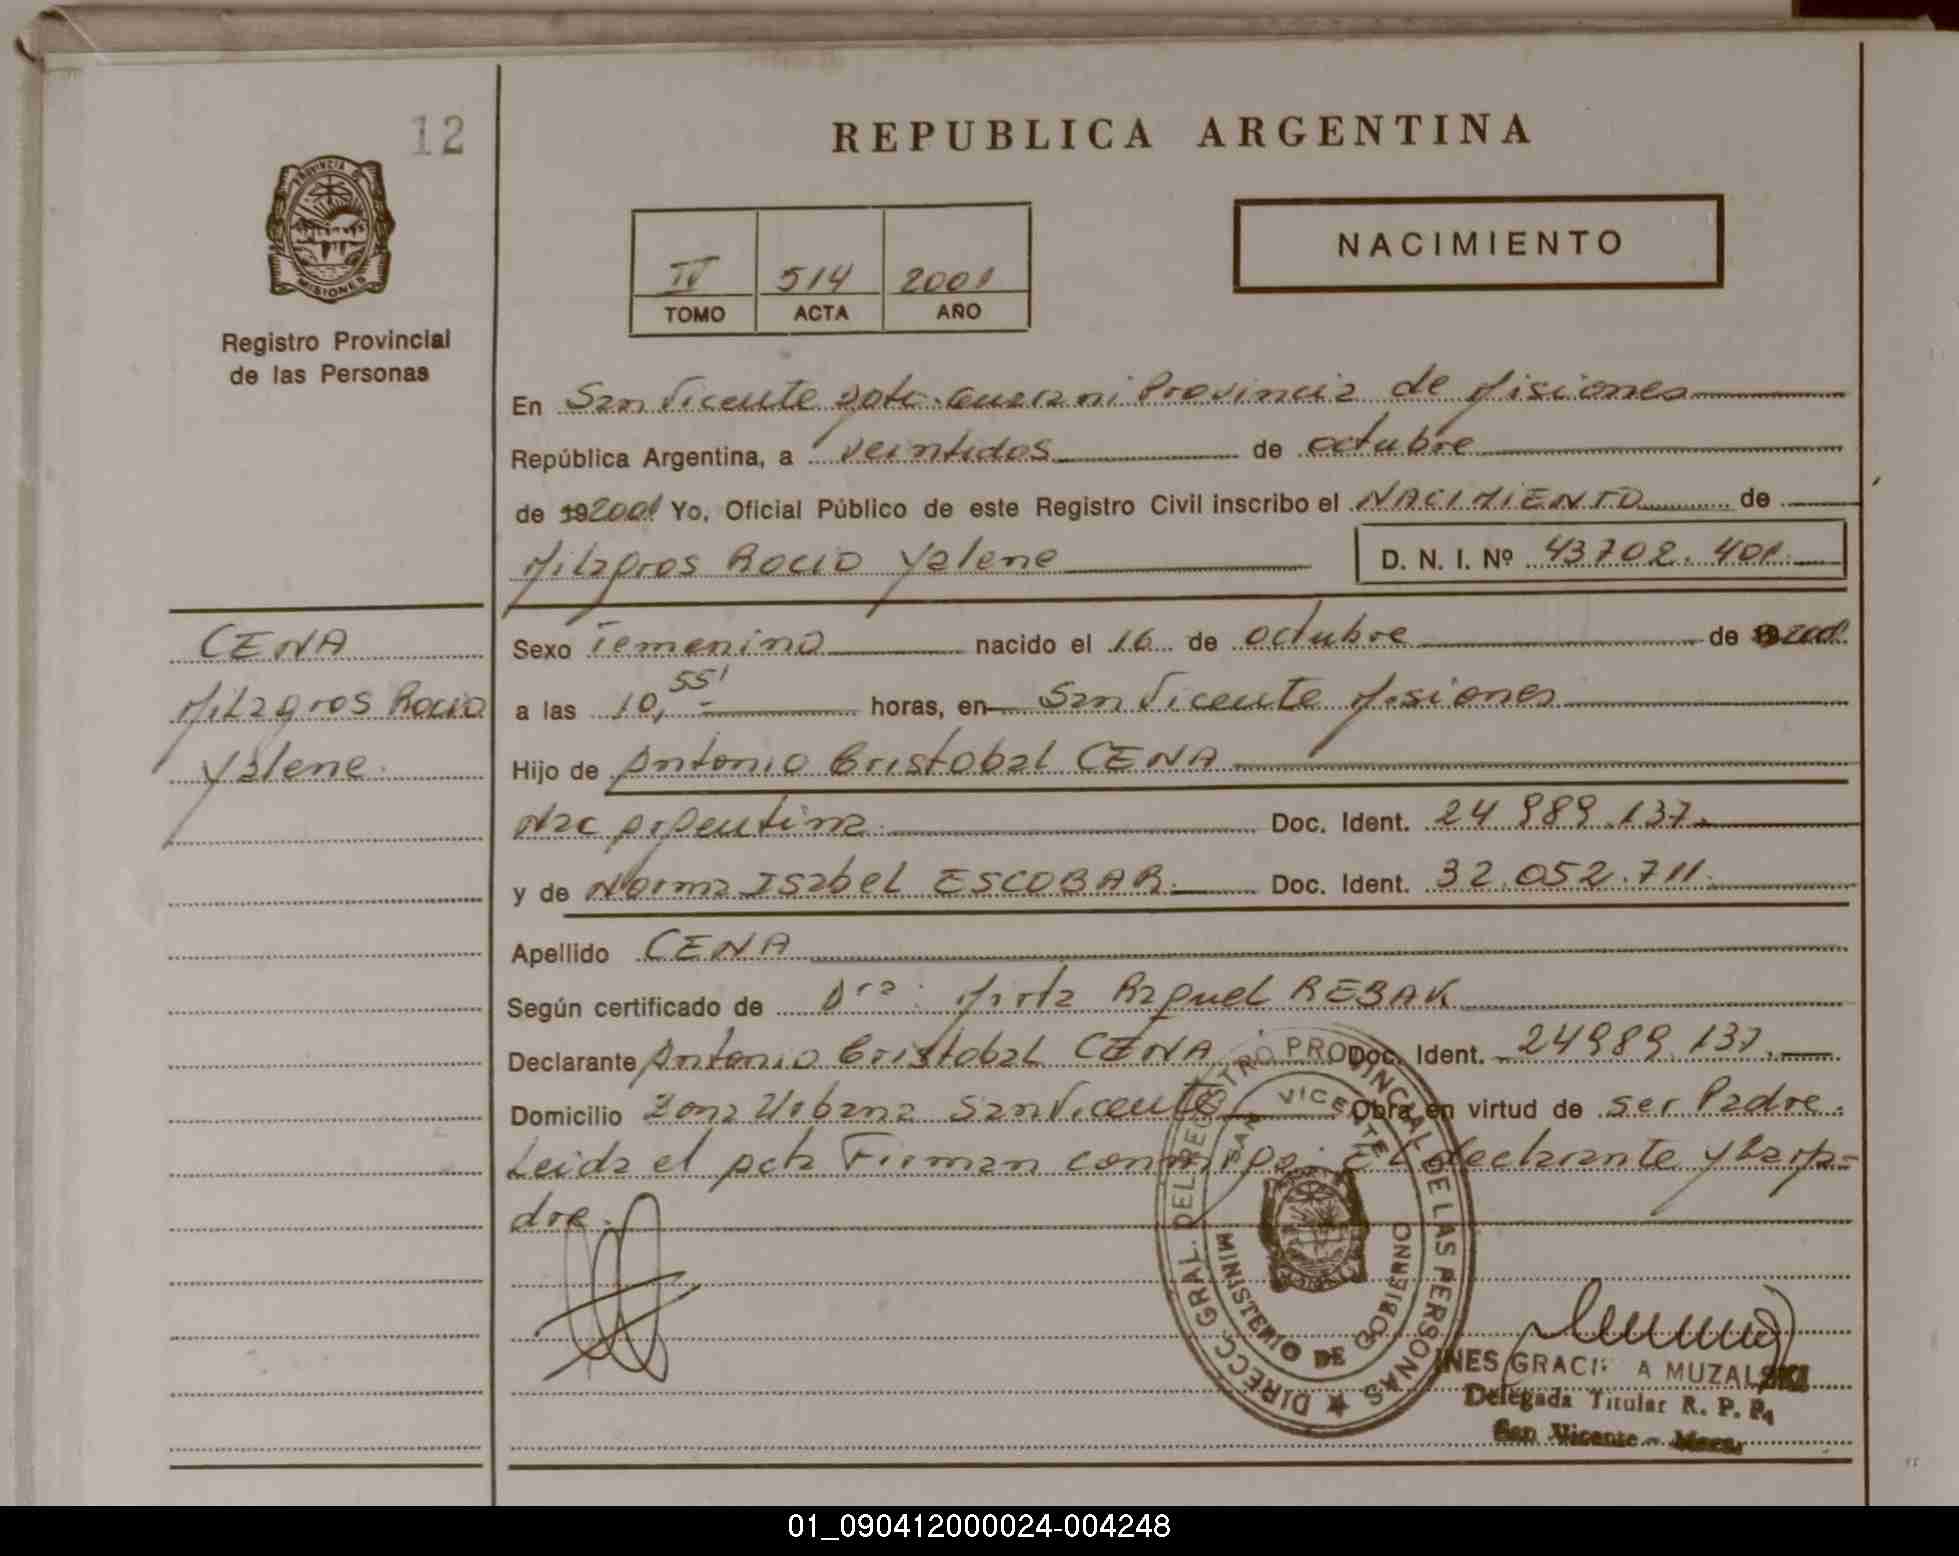 12
REPUBLICA ARGENTINA
PROVINCIA DE
MISIONES
Registro Provincial
de las Personas
NACIMIENTO
IV 514 2001
TOMO ACTA AÑO
En San Vicente Dpto. Guarani Provincia de Misiones
República Argentina, a veintidos de octubre
de 192001 Yo, Oficial Público de este Registro Civil inscribo el NACIMIENTO de
Milagros Rocio Yalene D. N. I. Nº 43702.401.
CENA
Milagros Rocio
Yalene.
Sexo Femenino nacido el 16 de octubre de 2001
a las 10,55' horas, en San Vicente Misiones
Hijo de Antonio Cristobal CENA
Nac argentina. Doc. Ident. 24 989.137.
y de Norma Isabel ESCOBAR. Doc. Ident. 32.052.711.
Apellido CENA
Según certificado de Dra. Mirta Raquel REBAK
Declarante Antonio Cristobal CENA Doc. Ident. 24989.137.
Domicilio Zona Urbana San Vicente Obra en virtud de ser Padre.
Leida el acta Firman conmigo: El declarante y la ma-
dre.
DIRECC. GRAL. DEL REGISTRO PROVINCIAL DE LAS PERSONAS
SAN VICENTE
MINISTERIO DE GOBIERNO
INES GRACI A MUZALSKI
Delegada Titular R. P. P.
San Vicente - Mnes.
01_090412000024-004248